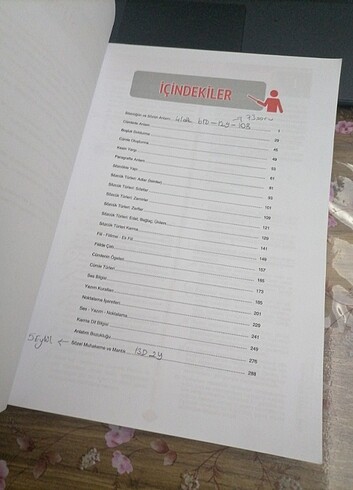 İÇİNDEKİLER
Sözcüğün ve Sözün Anlamı 7
Cümlede Anlam 23
Boşluk Doldurma 45
Cümle Oluşturma 49
Kesin Yargı 55
Paragrafta Anlam 61
Sözcükte Yapı 81
Sözcük Türleri: Adlar (İsimler) 91
Sözcük Türleri: Sıfatlar 95
Sözcük Türleri: Zamirler 101
Sözcük Türleri: Zarflar 109
Sözcük Türleri: Edat, Bağlaç, Ünlem 121
Sözcük Türleri Karma 129
Fiil - Fiilimsi - Ek Fiil 141
Fiilde Çatı 149
Cümlenin Ögeleri 157
Cümle Türleri 165
Ses Bilgisi 173
Yazım Kuralları 185
Noktalama İşaretleri 201
Ses - Yazım - Noktalama
Karma Dil Bilgisi 241
Anlatım Bozukluğu 249
Sözel Muhakeme ve Mantık 276
288
5 Eylül